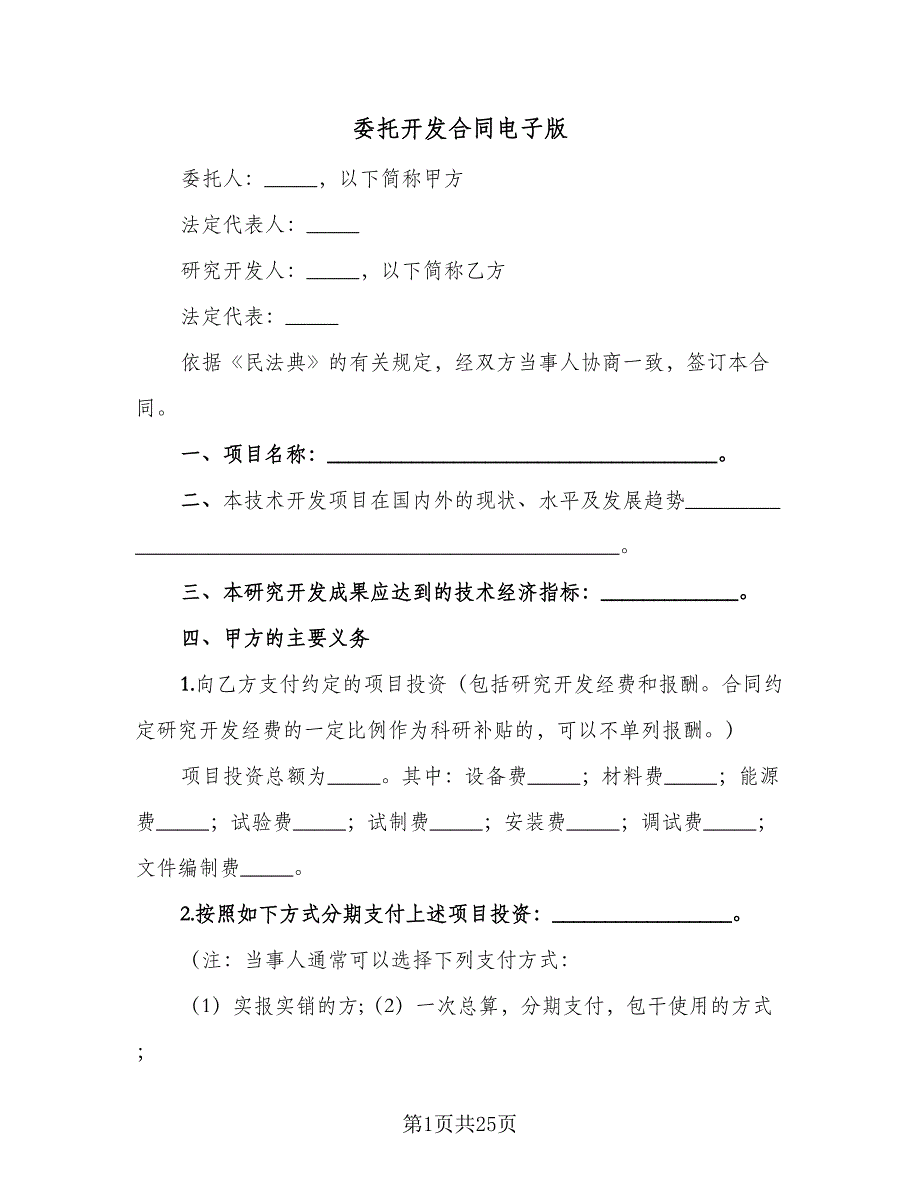 委托开发合同电子版
委托人：_____，以下简称甲方
法定代表人：_____
研究开发人：_____，以下简称乙方
法定代表：_____
依据《民法典》的有关规定，经双方当事人协商一致，签订本合
同。
一、项目名称：_____________________________________。
二、本技术开发项目在国内外的现状、水平及发展趋势_________
______________________________________________。
三、本研究开发成果应达到的技术经济指标：_____________。
四、甲方的主要义务
1.向乙方支付约定的项目投资（包括研究开发经费和报酬。合同约
定研究开发经费的一定比例作为科研补贴的，可以不单列报酬。）
项目投资总额为_____。其中：设备费_____；材料费_____；能源
费_____；试验费_____；试制费_____；安装费_____；调试费_____；
文件编制费_____。
2.按照如下方式分期支付上述项目投资：_________________。
（注：当事人通常可以选择下列支付方式：
（1）实报实销的方;（2）一次总算，分期支付，包干使用的方式
；
第1页共25页